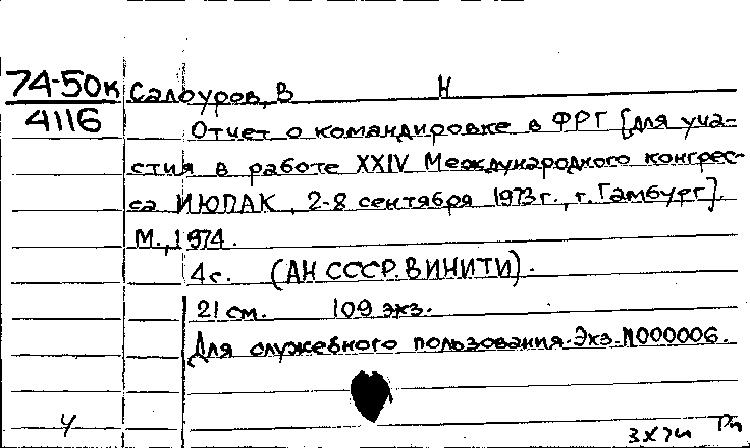 74-50к
4116
Салоуров, В Н
Отчет о командировке в ФРГ [для уча-
стия в работе XXIV Международного конгрес-
са ИЮПАК, 2-8 сентября 1973г., г. Гамбург].
М., 1974.
4с. (АН СССР. ВИНИТИ).
21 см. 109 экз.
Для служебного пользования. Экз. N000006.